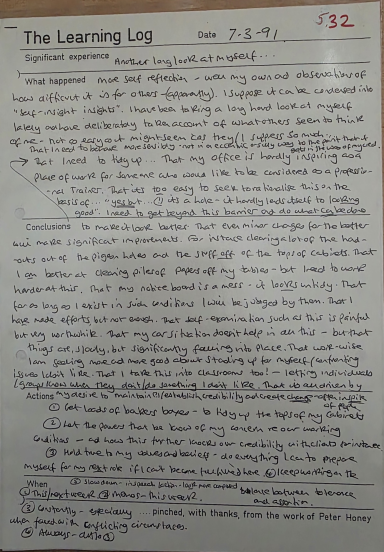 5.32
The Learning Log Date 7-3-91
Significant experience Another long look at myself...
What happened more self reflection - even my own observations of
how difficult it is for others (apparently). I suppose it can be condensed into
"self-insight insights". I have been taking a long hard look at myself
lately and have deliberately taken account of what others seem to think
of me - not so easy as it might seem (as they/I suppress so much
That I need to become more sensibly - not in a eccentric + silly way to the point that it
gets in the way of myself.
→ That I need to tidy up... That my office is hardly inspiring as a
place of work for someone who would like to be considered as a professio-
nal Trainer. That it's too easy to seek to rationalise this on the
basis of... "yes but... ① it's a hole - it hardly lends itself to looking
good". I need to get beyond this barrier and do what can be done
Conclusions to make it look better. That even minor changes for the better
will make significant improvements. For instance clearing a lot of the hand-
outs out of the pigeon holes and the stuff off of the tops of cabinets. That
I am better at clearing piles of papers off my tables - but need to work
harder at this. That my notice board is a mess - it looks untidy. That
for as long as I exist in such conditions I will be judged by them. That I
have made efforts but not enough. That self-examination such as this is painful
but very worthwhile. That my car situation doesn't help in all this - but that
things are, slowly, but significantly falling into place. That work-wise
I am feeling more and more good about standing up for myself/confronting
issues I don't like. That I take this into classrooms too! - letting individuals
/groups know when they don't/do something I don't like. That I am driven by
Actions my desire to maintain/establish credibility and create change often inspite
of people
① Get loads of bankers boxes - to tidy up the tops of my cabinets
② Let the powers that be know of my concern re our working
conditions - and how this further knocks our credibility with clients for instance
③ Hold true to my values and beliefs - do everything I can to prepare
myself for my next role if I can't become fulfilled here ④ Keep working on the
balance between tolerance
and assertion.
When
① This/next week ② Memos - this week.
③ Constantly - especially .... pinched, with thanks, from the work of Peter Honey
when faced with conflicting circumstances.
④ Always - ditto ③